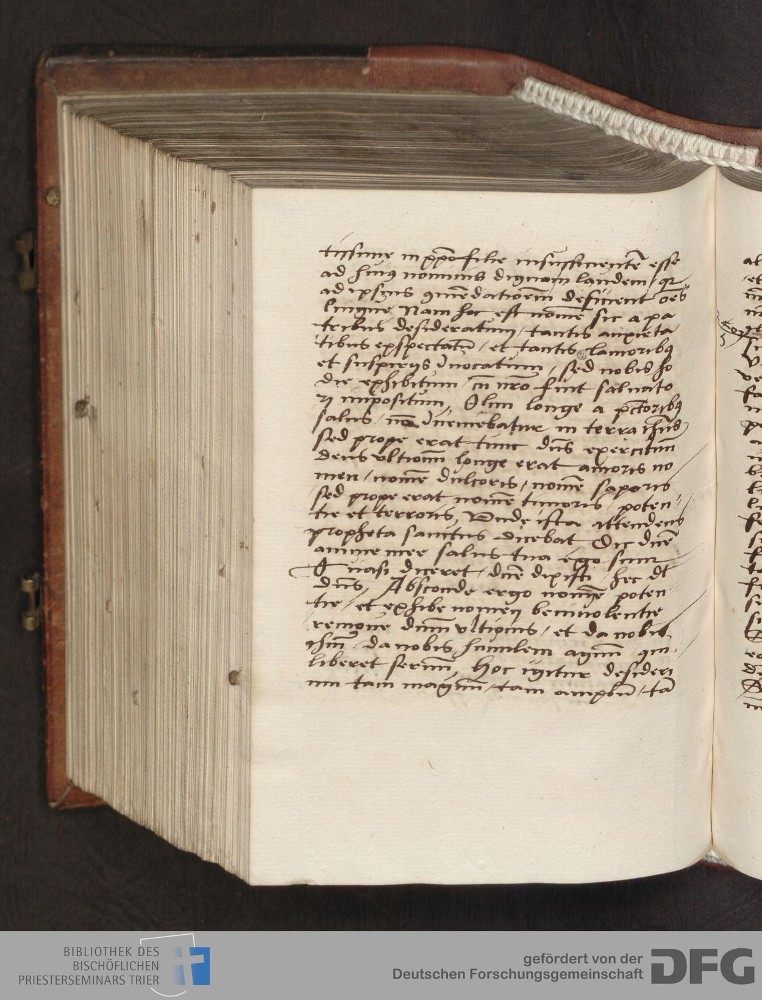 tissime in ppõ filie insufficientē esse
ad huiꝰ nominis dignam laudem / qꝛ
ad ipsius cōmēdationēm deficient oēs
lingue, Nam hoc est nomē sic a pa
tribus desideratum / tantis anxieta
tibus exspectatū / et tantis clamoribꝫ
et suspirijs Invocatum / sed nobis ho
die exhibitum / in nr̄o sint saluato
ri impositum, Olim longe a pctõribꝫ
salus / nō Inveniebatur in terra ihūs
sed prope erat tunc dn̄s exercituū
deus ultionū longe erat amoris no
men / nomē dulcoris / nomē saporis
sed prope erat nomē timoris / poten
tie et terroris, Vnde ista attendens
propheta sanctus dicebat Dic dn̄e
anime mee salus tua ego sum
Quasi diceret / dn̄e dixisti hec dt
dn̄s, Absconde ergo nomē poten
tie / et exhibe nomen beniuolentie
remoue dnm̄ ultionis / et da nobis
ihm̄ da nobis humilem agnū qui
liberet seruū, Hoc igitur desideri
um tam magnū / tam amplū / tā
BIBLIOTHEK DES
BISCHÖFLICHEN
PRIESTERSEMINARS TRIER
gefördert von der
Deutschen Forschungsgemeinschaft
DFG